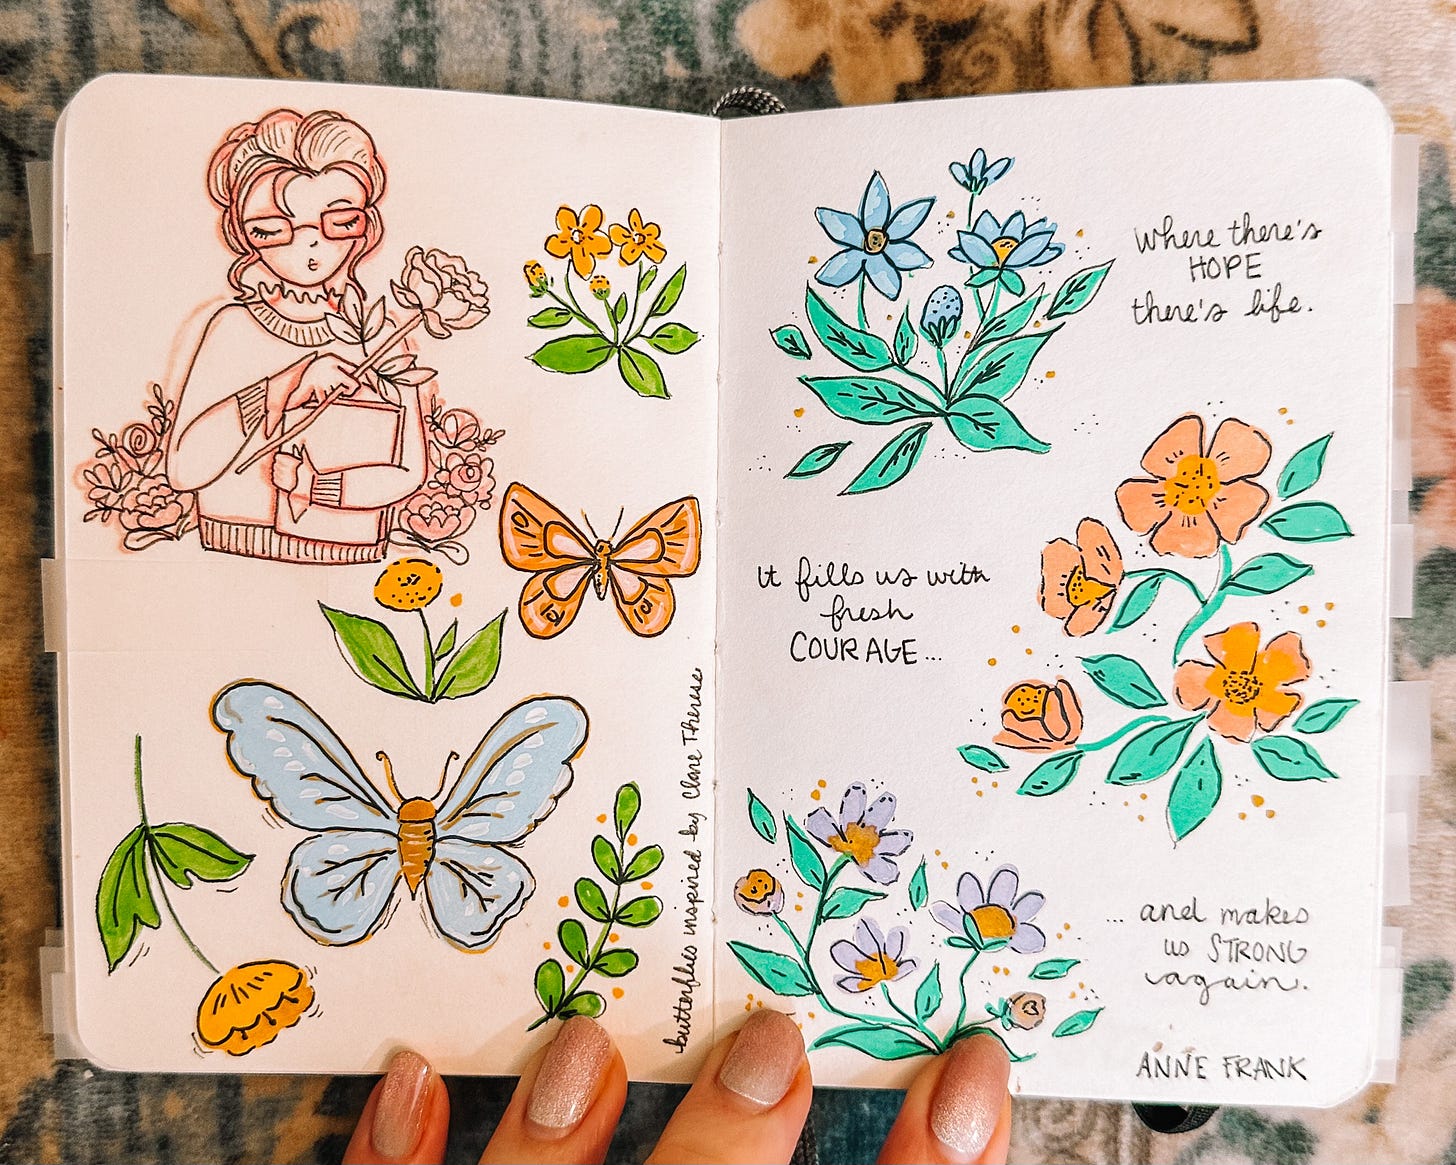 butterflies inspired by Clare Therese
Where there's
HOPE
there's life.
It fills us with
fresh
COURAGE...
... and makes
us STRONG
again.
ANNE FRANK